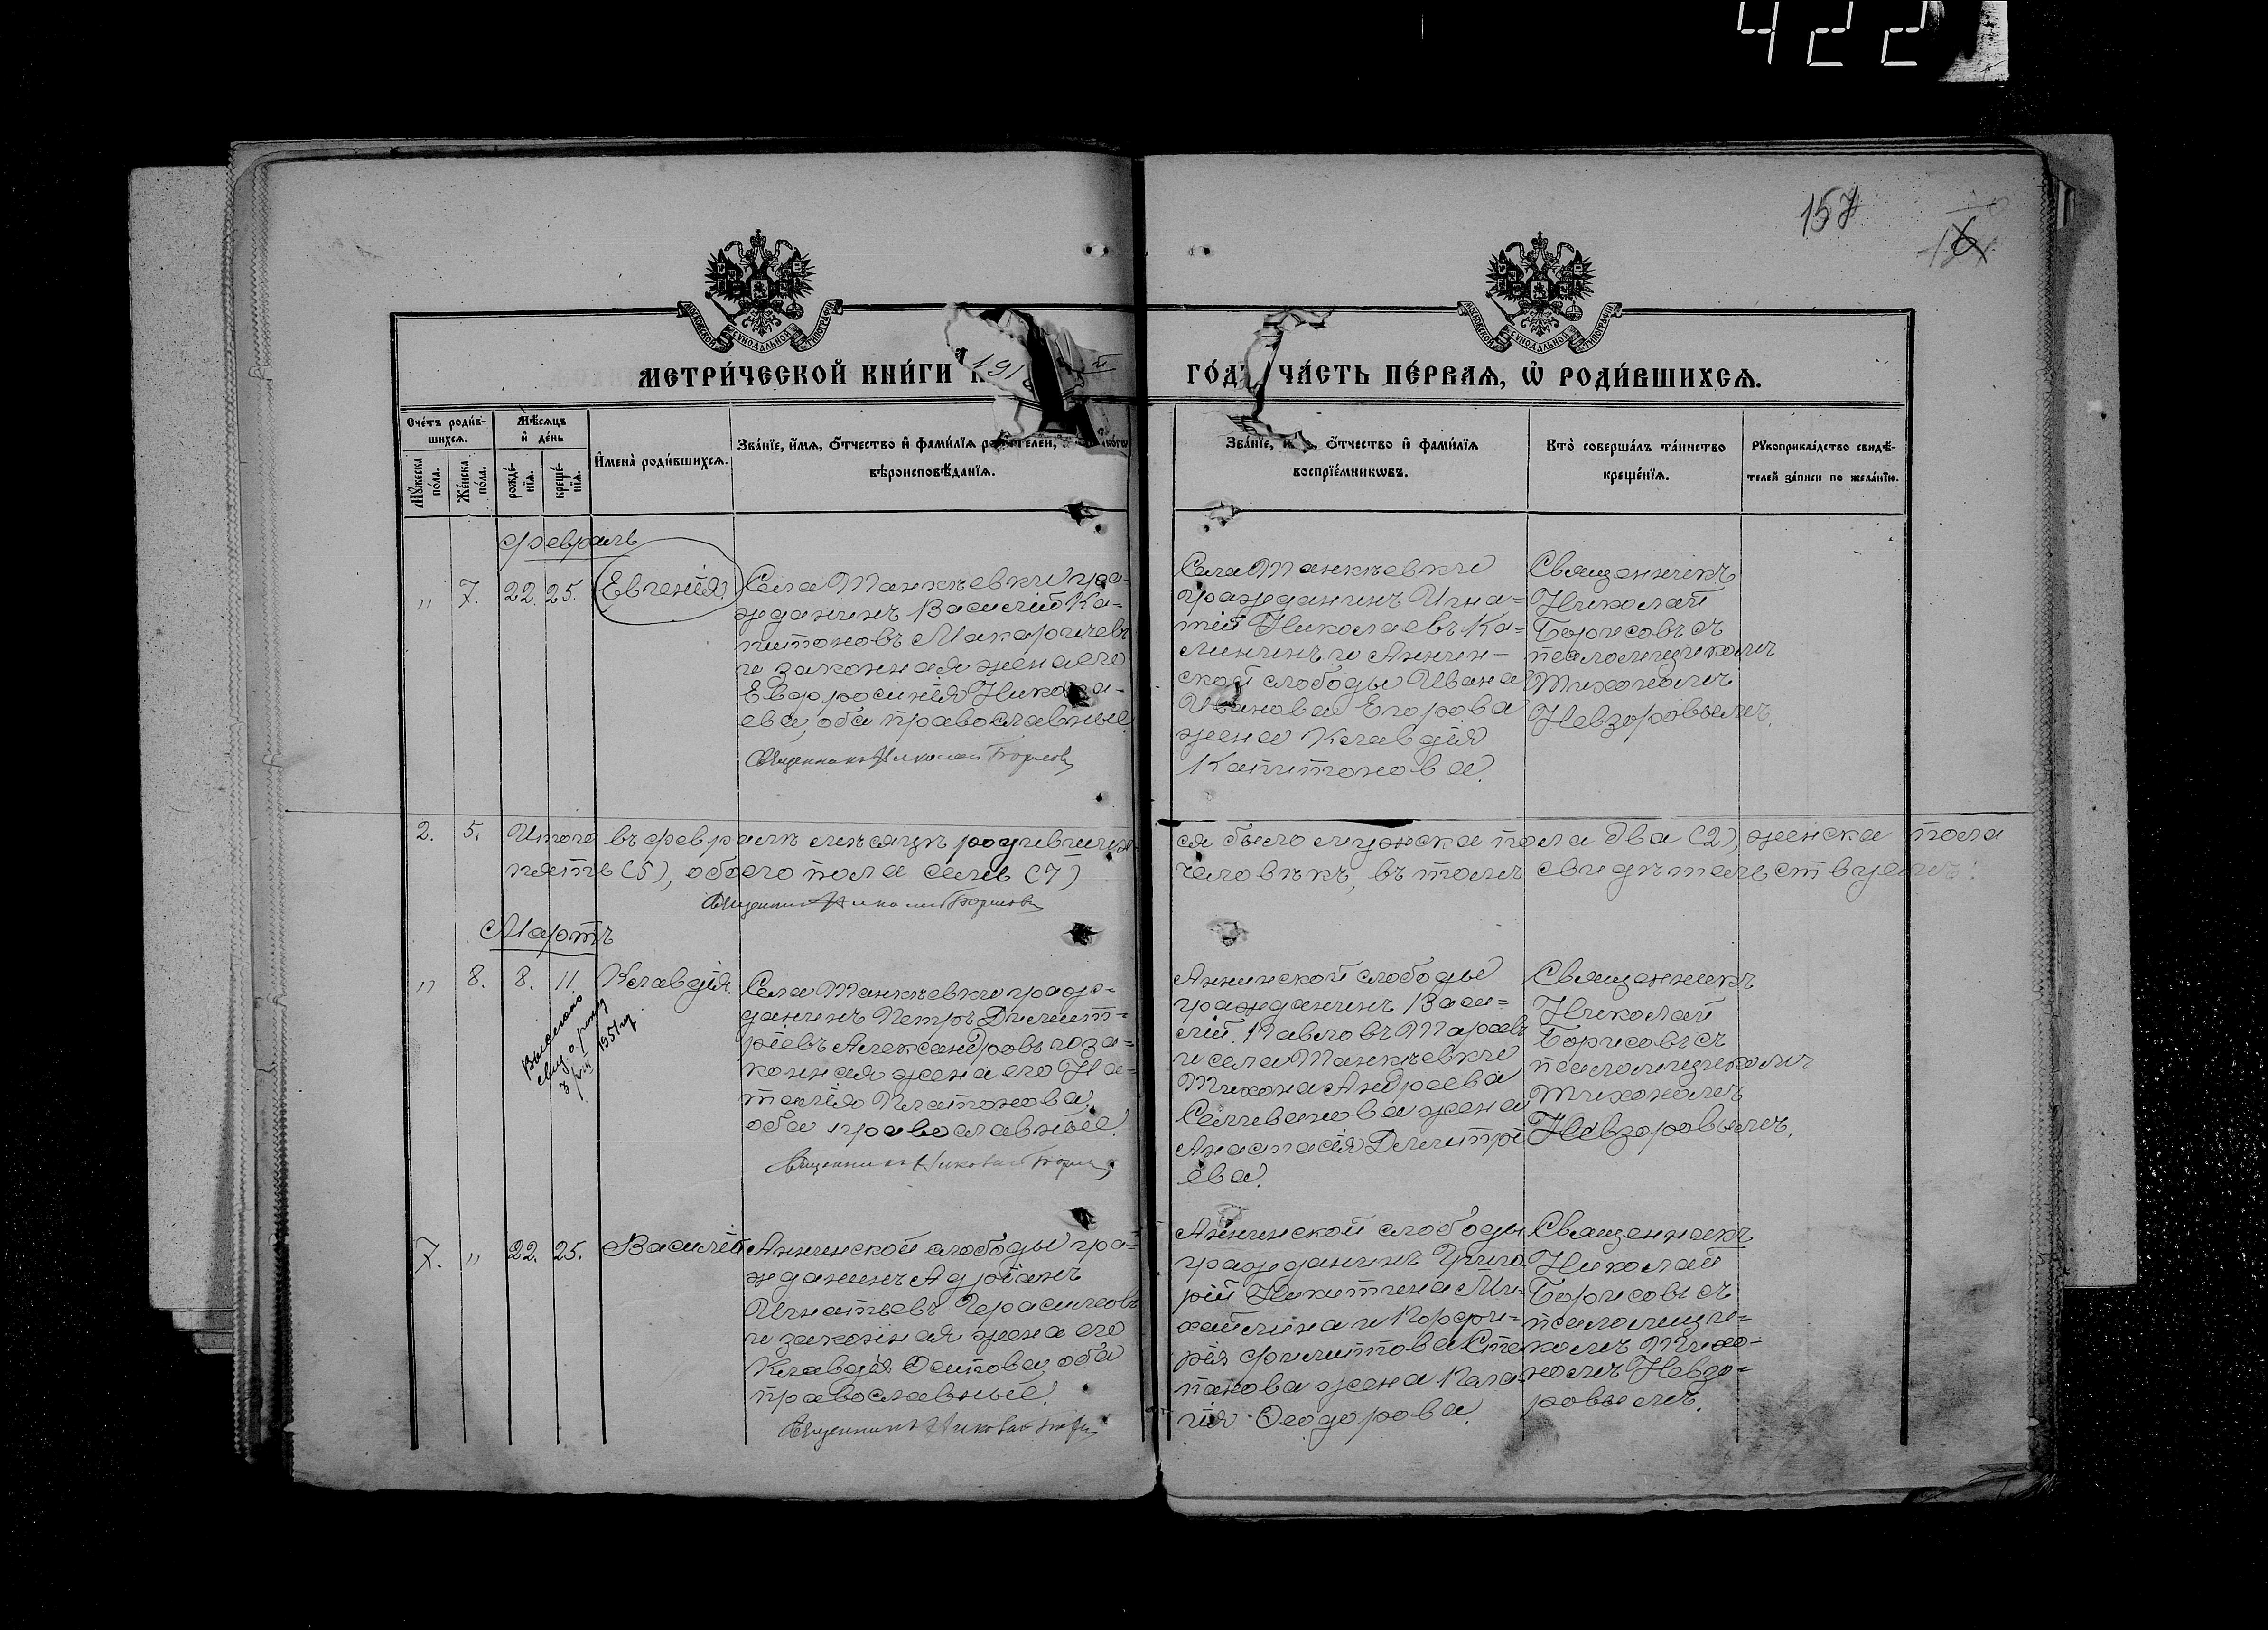 422
157
МОСКОВСКОЙ СѴНОДАЛЬНОЙ ТИПОГРАФІИ
МОСКОВСКОЙ СѴНОДАЛЬНОЙ ТИПОГРАФІИ
МЕТРИ́ЧЕСКОЙ КНИ́ГИ Н
191
ГО́ДЪ ЧА́СТЬ ПЕ́РВАЯ, Ѡ҆ РОДИ́ВШИХСЯ.
Сче́тъ роди́в-
шихся.
Мѣ́сяцъ
и҆ де́нь
Мꙋ́жеска
по́ла.
Же́нска
по́ла.
рожде́-
нїя.
креще́-
нїя.
И҆мена̀ роди́вшихся.
Зва́нїе, и҆́мя, ѻ҆́тчество и҆ фами́лїя родителей,
вѣроисповѣ́данїя.
Зва́нїе, ѻ҆́тчество и҆ фами́лїя
воспрїе́мникωвъ.
Кто̀ соверша́лъ та́инство
креще́нїя.
Рꙋкоприкла́дство свидѣ́-
телей за́писи по жела́нїю.
Февраль
„ 7. 22. 25. Евгенія.
Села Танкѣевки гра-
жданинъ Василій Ка-
питоновъ Макарычевъ
и законная жена его
Евфросинія Никола-
ева, оба православные
Священникъ Николай Борисовъ
Села Танкѣевки
гражданинъ Игна-
тій Николаевъ Ка-
линин и Аннин-
ской слободы Ивана
Иванова Егорова
жена Клавдія
Капитонова.
Священникъ
Николай
Борисовъ съ
псаломщикомъ
Тихономъ
Невзоровымъ.
2. 5. Итого въ февралѣ мѣсяцѣ родивших-
ся было мужска пола два (2), женска пола
пять (5), обоего пола семь (7)
человѣкъ, въ томъ свидѣтельствуемъ:
Священникъ Николай Борисовъ
Мартъ
„ 8. 8. 11. Клавдія.
1951 г.
Села Танкѣевки граж-
данинъ Петръ Димит-
ріевъ Александровъ и за-
конная жена его На-
талія Платонова,
оба православные.
Священникъ Николай Борисовъ
Аннинской слободы
гражданинъ Васи-
лій Павловъ
и села Танкѣевки
Тихона Андреева
Селиванова жена
Анастасія Димитрі-
ева.
Священникъ
Николай
Борисовъ съ
псаломщикомъ
Тихономъ
Невзоровымъ.
7. „ 22. 25. Василій
Аннинской слободы гра-
жданинъ Адріанъ
Игнатьевъ Герасимовъ
и законная жена его
Клавдія Осипова, оба
православные.
Священникъ Николай
Аннинской слободы
гражданинъ Григо-
рій Никитина Ми-
хайлина и Порфи-
рія Филиппова Сте-
панова жена Пела-
гія Ѳеодорова.
Священникъ
Николай
Борисовъ съ
псаломщи-
комъ Тихо-
номъ Невзо-
ровымъ.